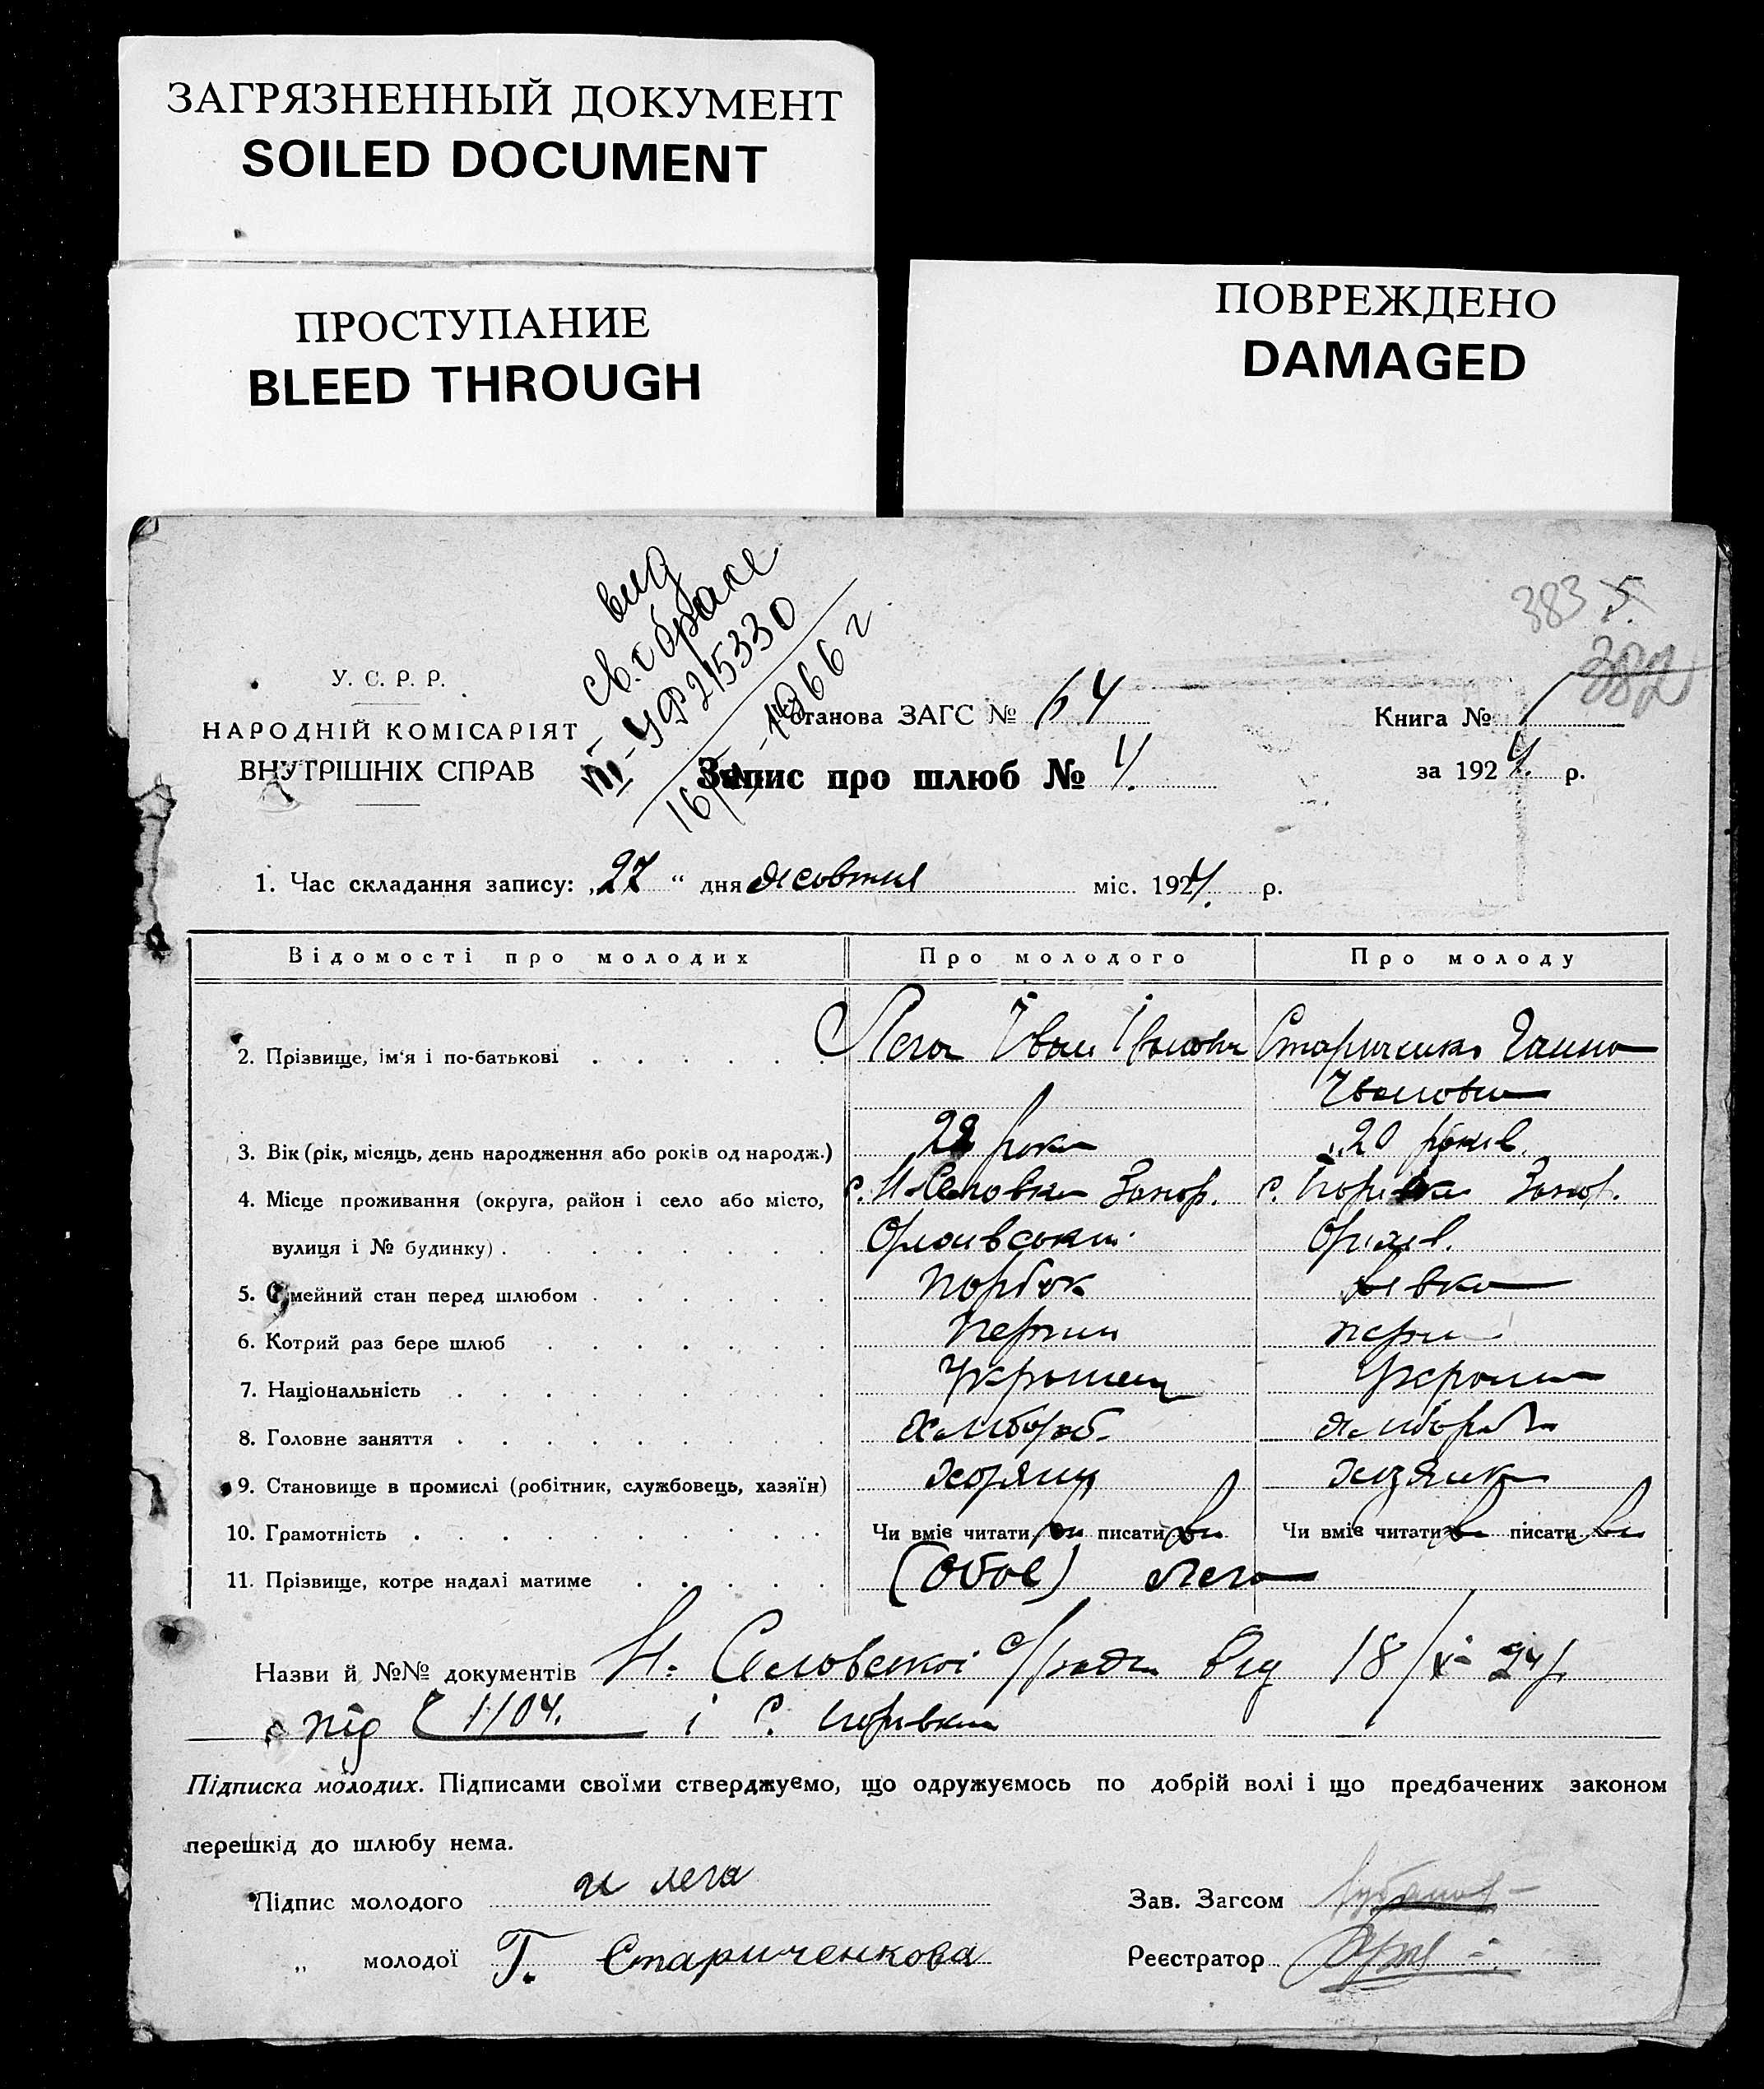 ЗАГРЯЗНЕННЫЙ ДОКУМЕНТ
SOILED DOCUMENT
ПРОСТУПАНИЕ
BLEED THROUGH
ПОВРЕЖДЕНО
DAMAGED
383 5.
382
вид
св. о браке
III-УР 215330
16/ -1966 г
У. С. Р. Р.
НАРОДНІЙ КОМІСАРІЯТ
ВНУТРІШНІХ СПРАВ
Установа ЗАГС № 64
Книга № 1
Запис про шлюб № 4.
за 1924. р.
1. Час складання запису: „27“ дня жовтня міс. 1924. р.
Відомості про молодих Про молодого Про молоду
2. Прізвище, ім'я і по-батькові Лега Іван Іванович Стариченко Ганна
Івановна
3. Вік (рік, місяць, день народження або років од народж.) 22 роки 20 років.
4. Місце проживання (округа, район і село або місто, с. Запор. с. Запор.
вулиця і № будинку)
5. Сімейний стан перед шлюбом парубок дівка
6. Котрий раз бере шлюб перший перш
7. Національність Українец Україн
8. Головне заняття хлібороб. хлібороб
9. Становище в промислі (робітник, службовець, хазяїн) хозяин хозяйка
10. Грамотність Чи вміє читати вм писати вм Чи вміє читати вм писати вм
11. Прізвище, котре надалі матиме (обоє) Лега
Назви й №№ документів Н. с/ради від 18/X- 24 р.
під № 1104. і с.
Підписка молодих. Підписами своїми стверджуємо, що одружуємось по добрій волі і що предбачених законом
перешкід до шлюбу нема.
Підпис молодого И лега
Зав. Загсом
„ молодої Г. Стариченкова
Реєстратор